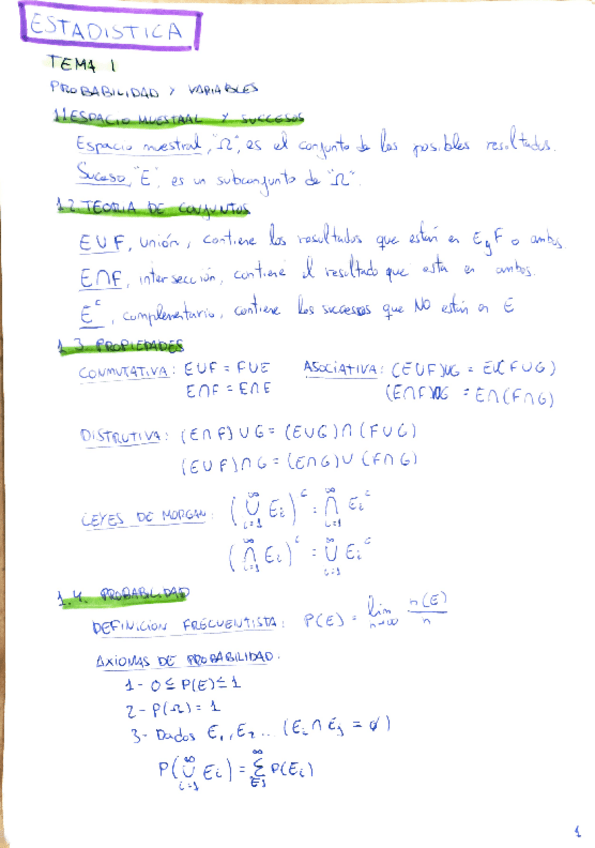 ESTADISTICA
TEMA 1
PROBABILIDAD Y VARIABLES
1.1 ESPACIO MUESTRAL Y SUCCESOS
Espacio muestral, "Ω", es el conjunto de los posibles resultados.
Suceso, "E", es un subconjunto de "Ω".
1.2. TEORIA DE CONJUNTOS
E∪F, unión, contiene los resultados que están en E y F o ambos
E∩F, intersección, contiene el resultado que esta en ambos.
E^c, complementario, contiene los succesos que NO están en E
1.3. PROPIEDADES
CONMUTATIVA: E∪F = F∪E ASOCIATIVA: (E∪F)∪G = E∪(F∪G)
E∩F = E∩E (E∩F)∩G = E∩(F∩G)
DISTRUTIVA: (E∩F)∪G = (E∪G)∩(F∪G)
(E∪F)∩G = (E∩G)∪(F∩G)
LEYES DE MORGAN: (∞∪i=1 Ei)^c = ∞∩i=1 Ei^c
(∞∩i=1 Ei)^c = ∞∪i=1 Ei^c
1.4. PROBABILIDAD
DEFINICION FRECUENTISTA: P(E) = lim n→∞ n(E)/n
AXIOMAS DE PROBABILIDAD:
1- 0 ≤ P(E) ≤ 1
2- P(Ω) = 1
3- Dados E1, E2 .. (Ei ∩ Ej = ∅)
P(∞∪i=1 Ei) = ∞Σ P(Ei)
1